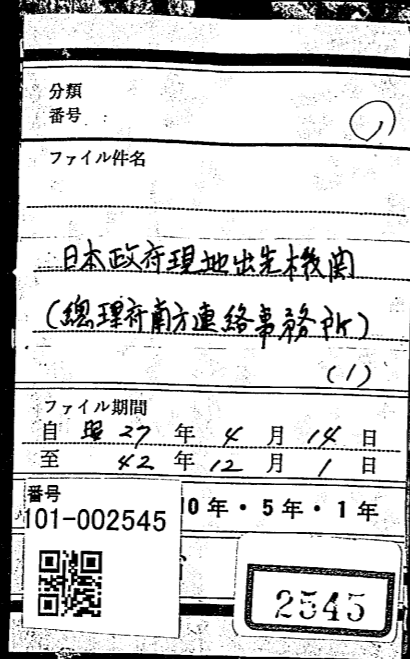 分類
番号 :
ファイル件名
日本政府現地出先機関
(總理府南方連絡事務所)
(1)
ファイル期間
自 昭 27 年 4 月 14 日
至 42 年 12 月 1 日
10 年・5 年・1 年
番号
101-002545
2545